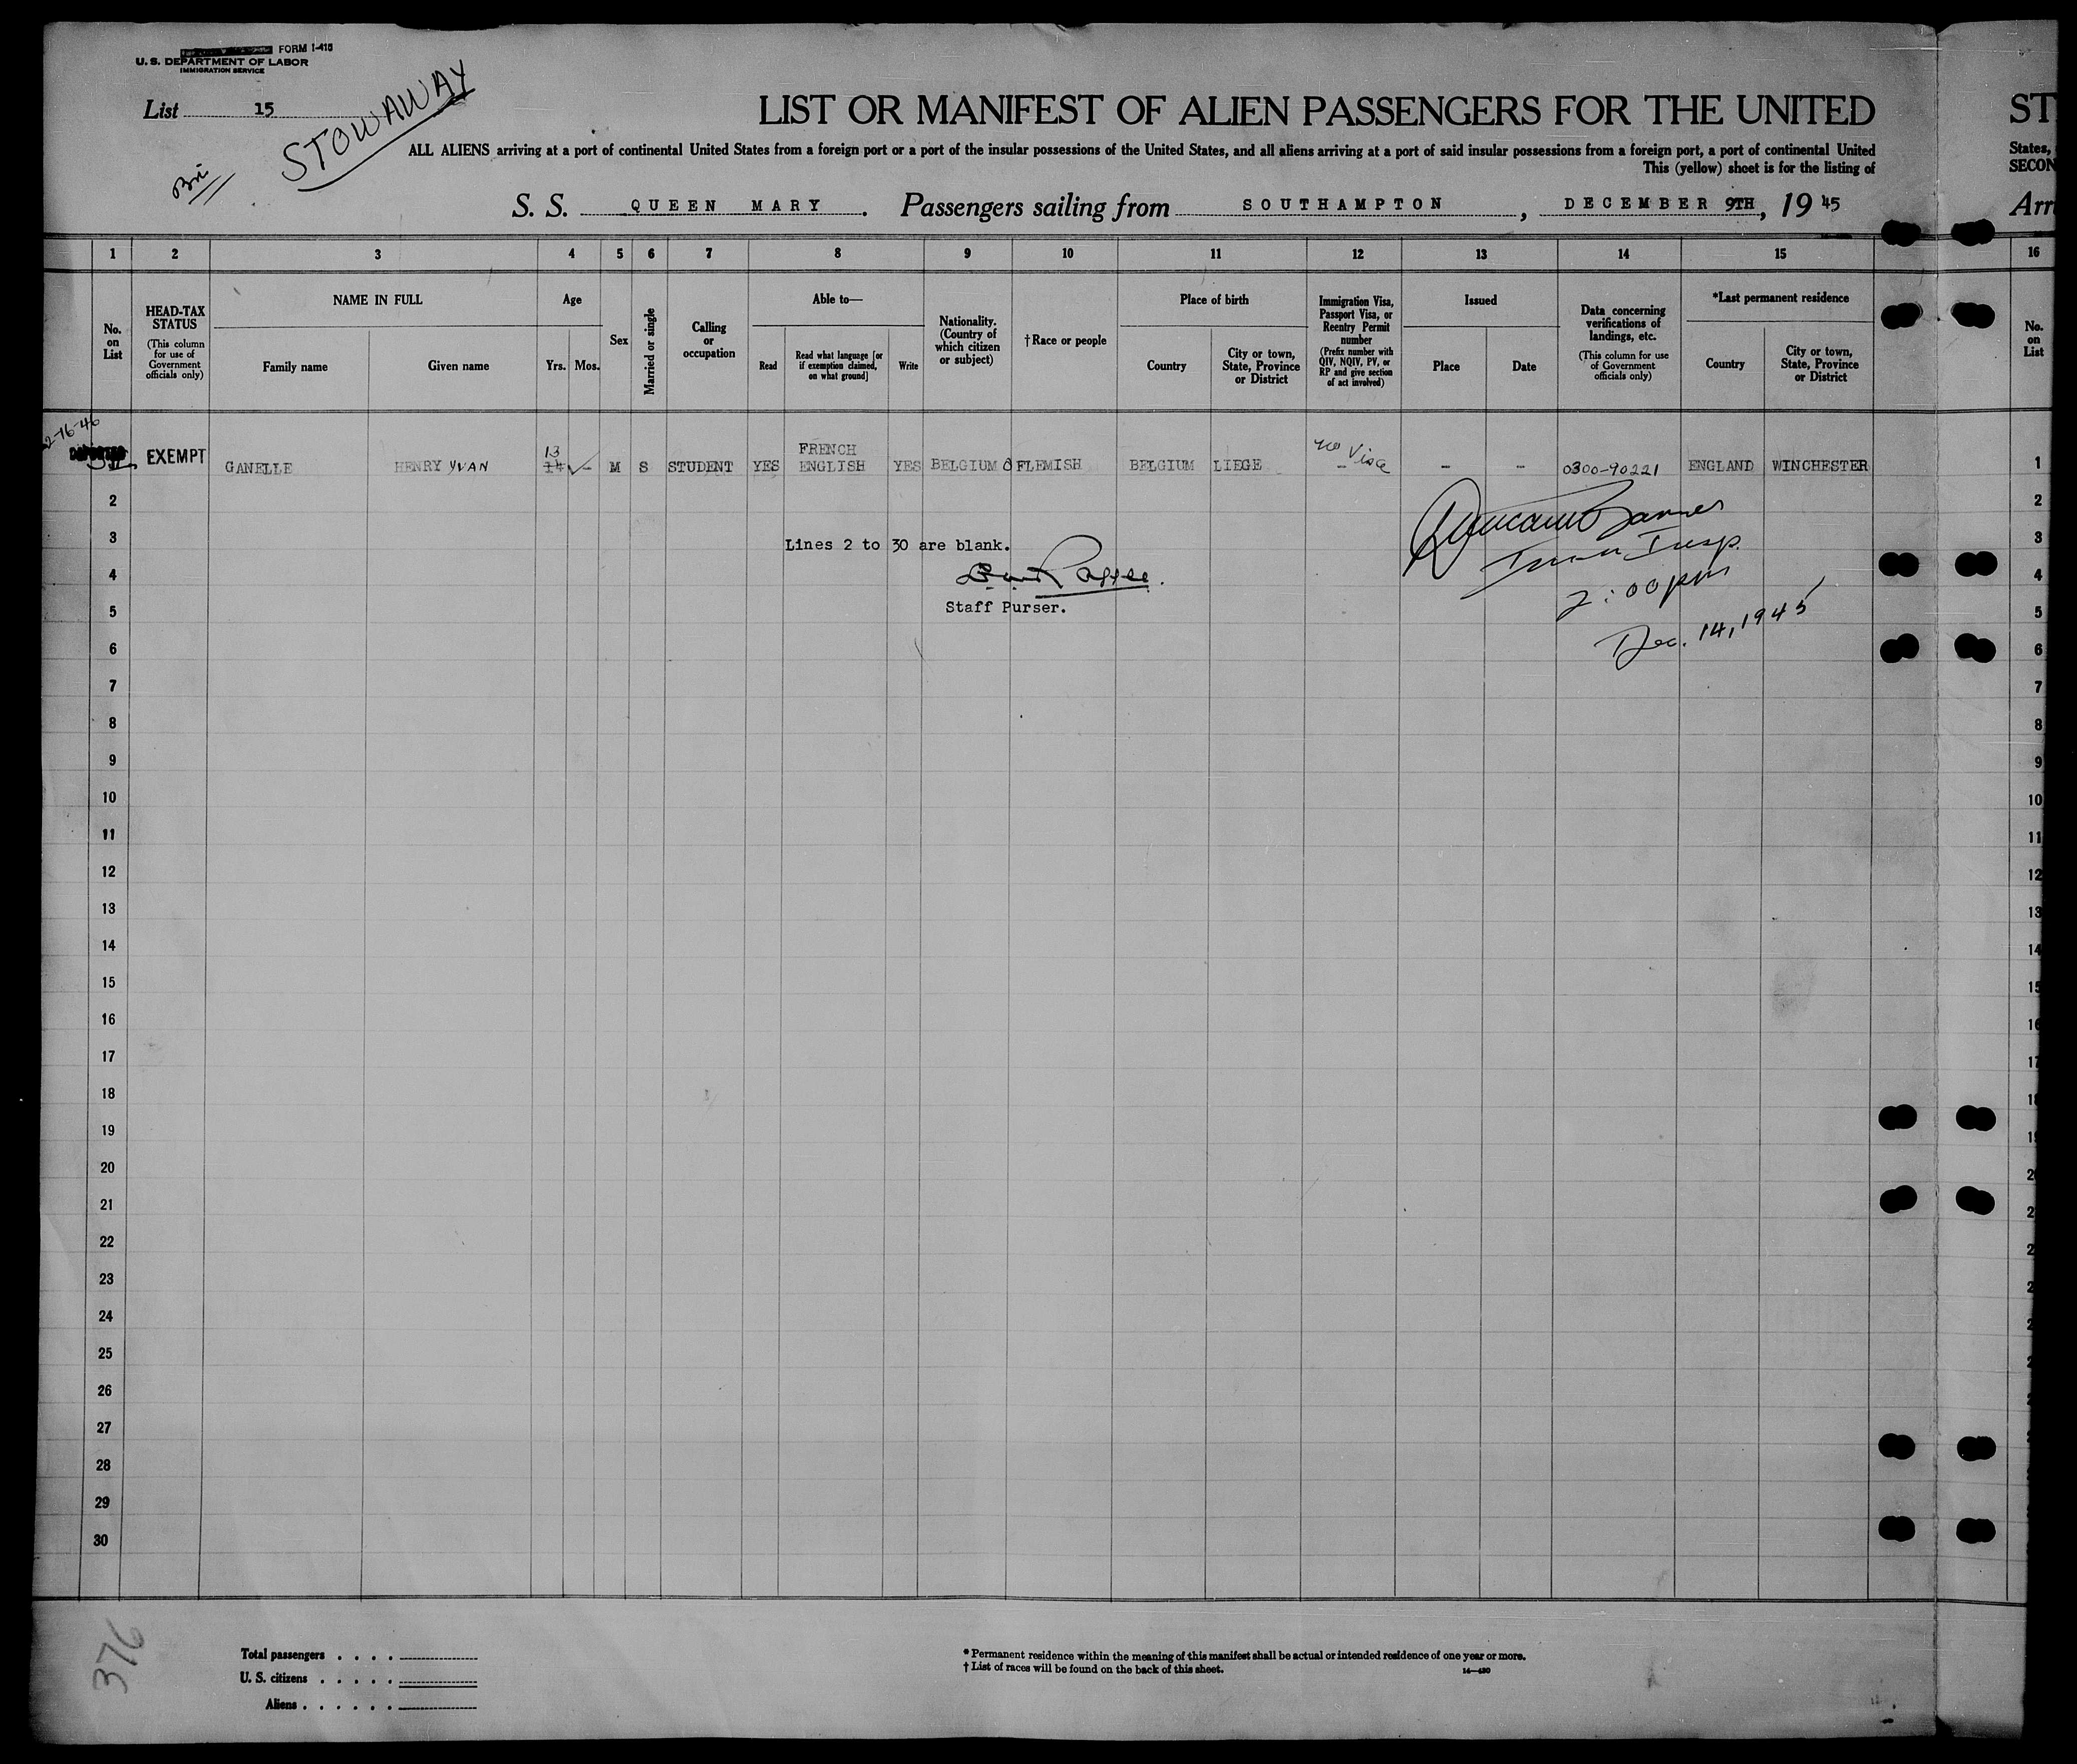 FORM I-415
U. S. DEPARTMENT OF LABOR
IMMIGRATION SERVICE
List 15
STOWAWAY
LIST OR MANIFEST OF ALIEN PASSENGERS FOR THE UNITED
ST
ALL ALIENS arriving at a port of continental United States from a foreign port or a port of the insular possessions of the United States, and all aliens arriving at a port of said insular possessions from a foreign port, a port of continental United
States,
This (yellow) sheet is for the listing of
SECON
S. S. QUEEN MARY. Passengers sailing from SOUTHAMPTON, DECEMBER 9TH, 19 45
Arri
1 2 3 4 5 6 7 8 9 10 11 12 13 14 15 16
No. on List
HEAD-TAX STATUS
(This column for use of Government officials only)
NAME IN FULL
Family name
Given name
Age
Yrs. Mos.
Sex
Married or single
Calling or occupation
Able to—
Read
Read what language [or if exemption claimed, on what ground]
Write
Nationality. (Country of which citizen or subject)
† Race or people
Place of birth
Country
City or town, State, Province or District
Immigration Visa, Passport Visa, or Reentry Permit number
(Prefix number with QIV, NQIV, PV, or RP and give section of act involved)
Issued
Place
Date
Data concerning verifications of landings, etc.
(This column for use of Government officials only)
*Last permanent residence
Country
City or town, State, Province or District
No. on List
2-16-46
DEPORTED
EXEMPT GANELLE HENRY YVAN 13 14 ✓ - M S STUDENT YES FRENCH ENGLISH YES BELGIUM FLEMISH BELGIUM LIEGE no Visa - - - 0300-90221 ENGLAND WINCHESTER 1
2 2
3 Lines 2 to 30 are blank. 3
Immn Insp.
4 4
2:00 pm
5 Staff Purser. 5
Dec. 14, 1945
6 6
7 7
8 8
9 9
10 10
11 11
12 12
13 13
14 14
15 15
16 16
17 17
18 18
19 19
20 2
21 2
22 2
23 2
24 2
25 2
26
27
28
29
30
376
Total passengers . . . .
U. S. citizens . . . . .
Aliens . . . . . .
* Permanent residence within the meaning of this manifest shall be actual or intended residence of one year or more.
† List of races will be found on the back of this sheet.
14—430